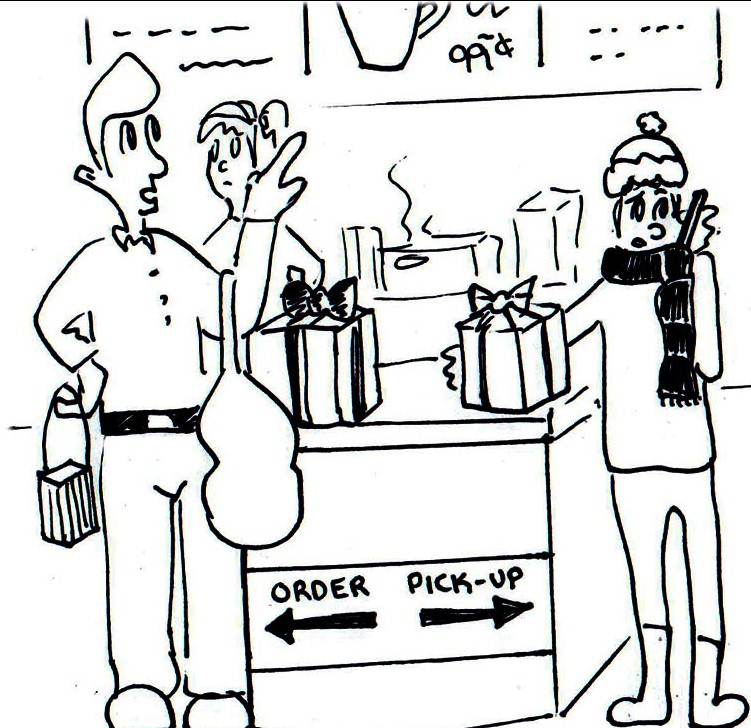 99¢
ORDER PICK-UP